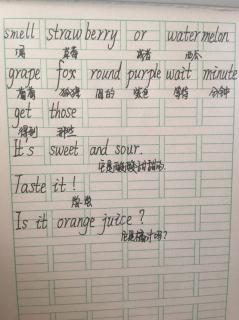 smell strawberry or watermelon
闻 草莓 或者 西瓜
grape fox round purple wait minute
葡萄 狐狸 圆的 紫色 等待 分钟
get those
得到 那些
It's sweet and sour.
它是酸酸甜甜的.
Taste it!
尝一尝
Is it orange juice?
它是橘汁吗?